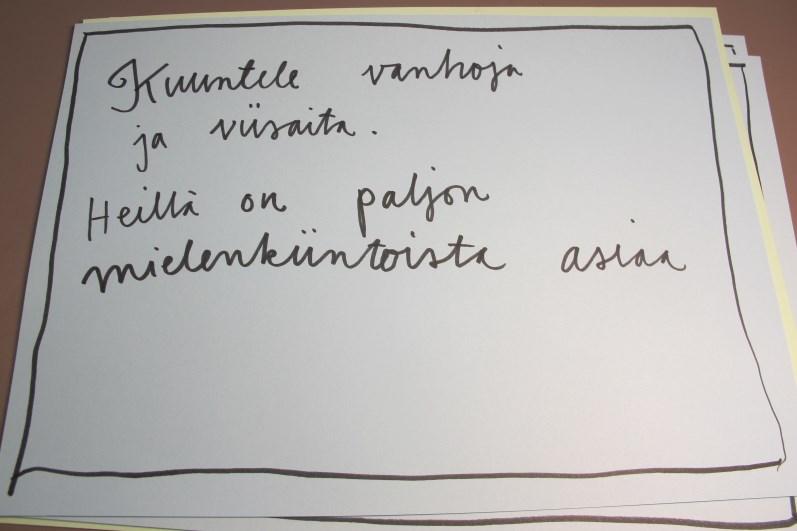 Kuuntele vanhoja
ja viisaita.
Heillä on paljon
mielenkiintoista asiaa